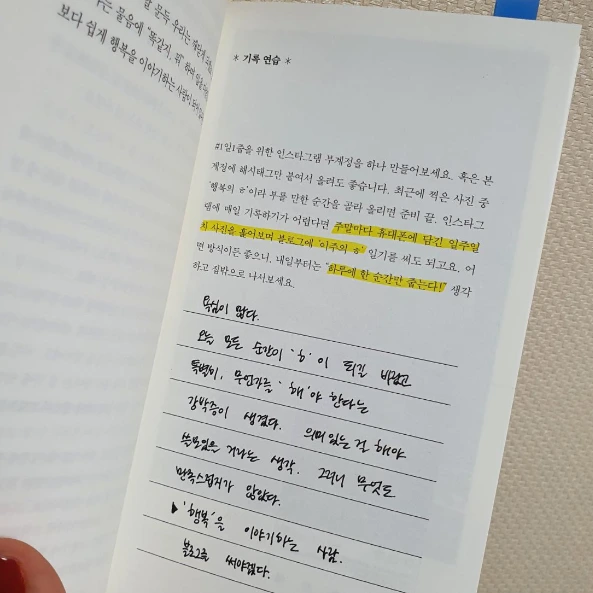 보다 쉽게 행복을 이야기하는 사람이
* 기록 연습 *
#1일1줍을 위한 인스타그램 부계정을 하나 만들어보세요. 혹은 본
계정에 해시태그만 붙여서 올려도 좋습니다. 최근에 찍은 사진 중
'행복의 ㅎ'이라 부를 만한 순간을 골라 올리면 준비 끝. 인스타그
램에 매일 기록하기가 어렵다면 주말마다 휴대폰에 담긴 일주일
치 사진을 훑어보며 블로그에 '이주의 ㅎ' 일기를 써도 되고요. 어
떤 방식이든 좋으니, 내일부터는 "하루에 한 순간만 줍는다!" 생각
하고 집밖으로 나서보세요.
욕심이 많다.
오늘 모든 순간이 'ㅎ'이 되길 바랐고
특별히, 무언가를 '해'야 한다는
강박증이 생겼다. 의미있는 걸 해야
쓸모있을 거라는 생각. 그러니 무엇도
만족스럽지가 않았다.
▶ '행복'을 이야기하는 사람.
블로그를 써야겠다.